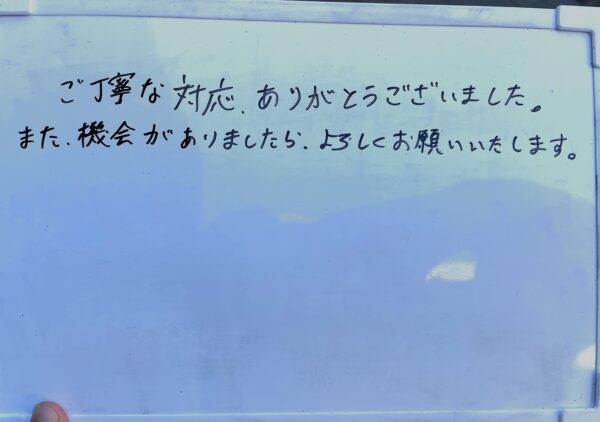 ご丁寧な対応、ありがとうございました。
また、機会がありましたら、よろしくお願いいたします。